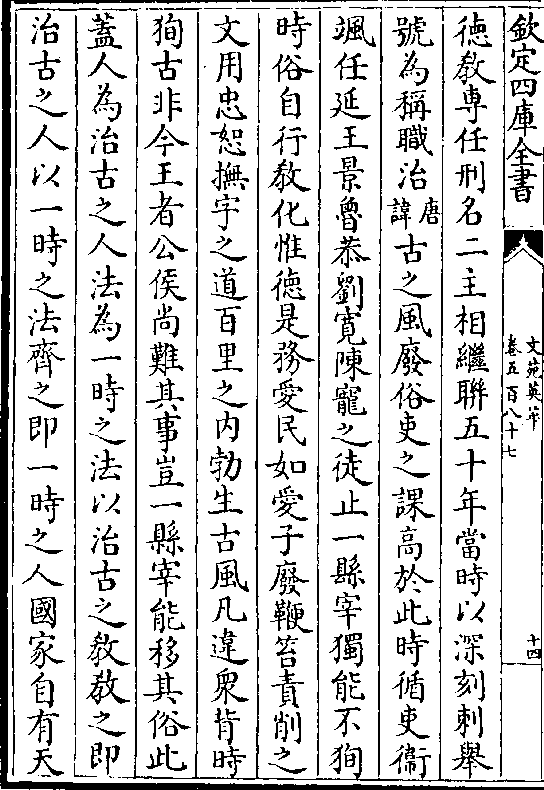 欽定四庫全書
文苑英華
卷五百八十七
十四
德教専任刑名二主相繼聨五十年當時以深刻刺舉
號為稱職治唐諱古之風廢俗吏之課高於此時循吏衞
颯任延王景魯恭劉寛陳寵之徒止一縣宰獨能不狥
時俗自行教化惟德是務愛民如愛子廢鞭笞責削之
文用忠恕撫字之道百里之内勃生古風凡違衆背時
狥古非今王者公侯尚難其事豈一縣宰能移其俗此
蓋人為治古之人法為一時之法以治古之教教之即
治古之人以一時之法齊之即一時之人國家自有天